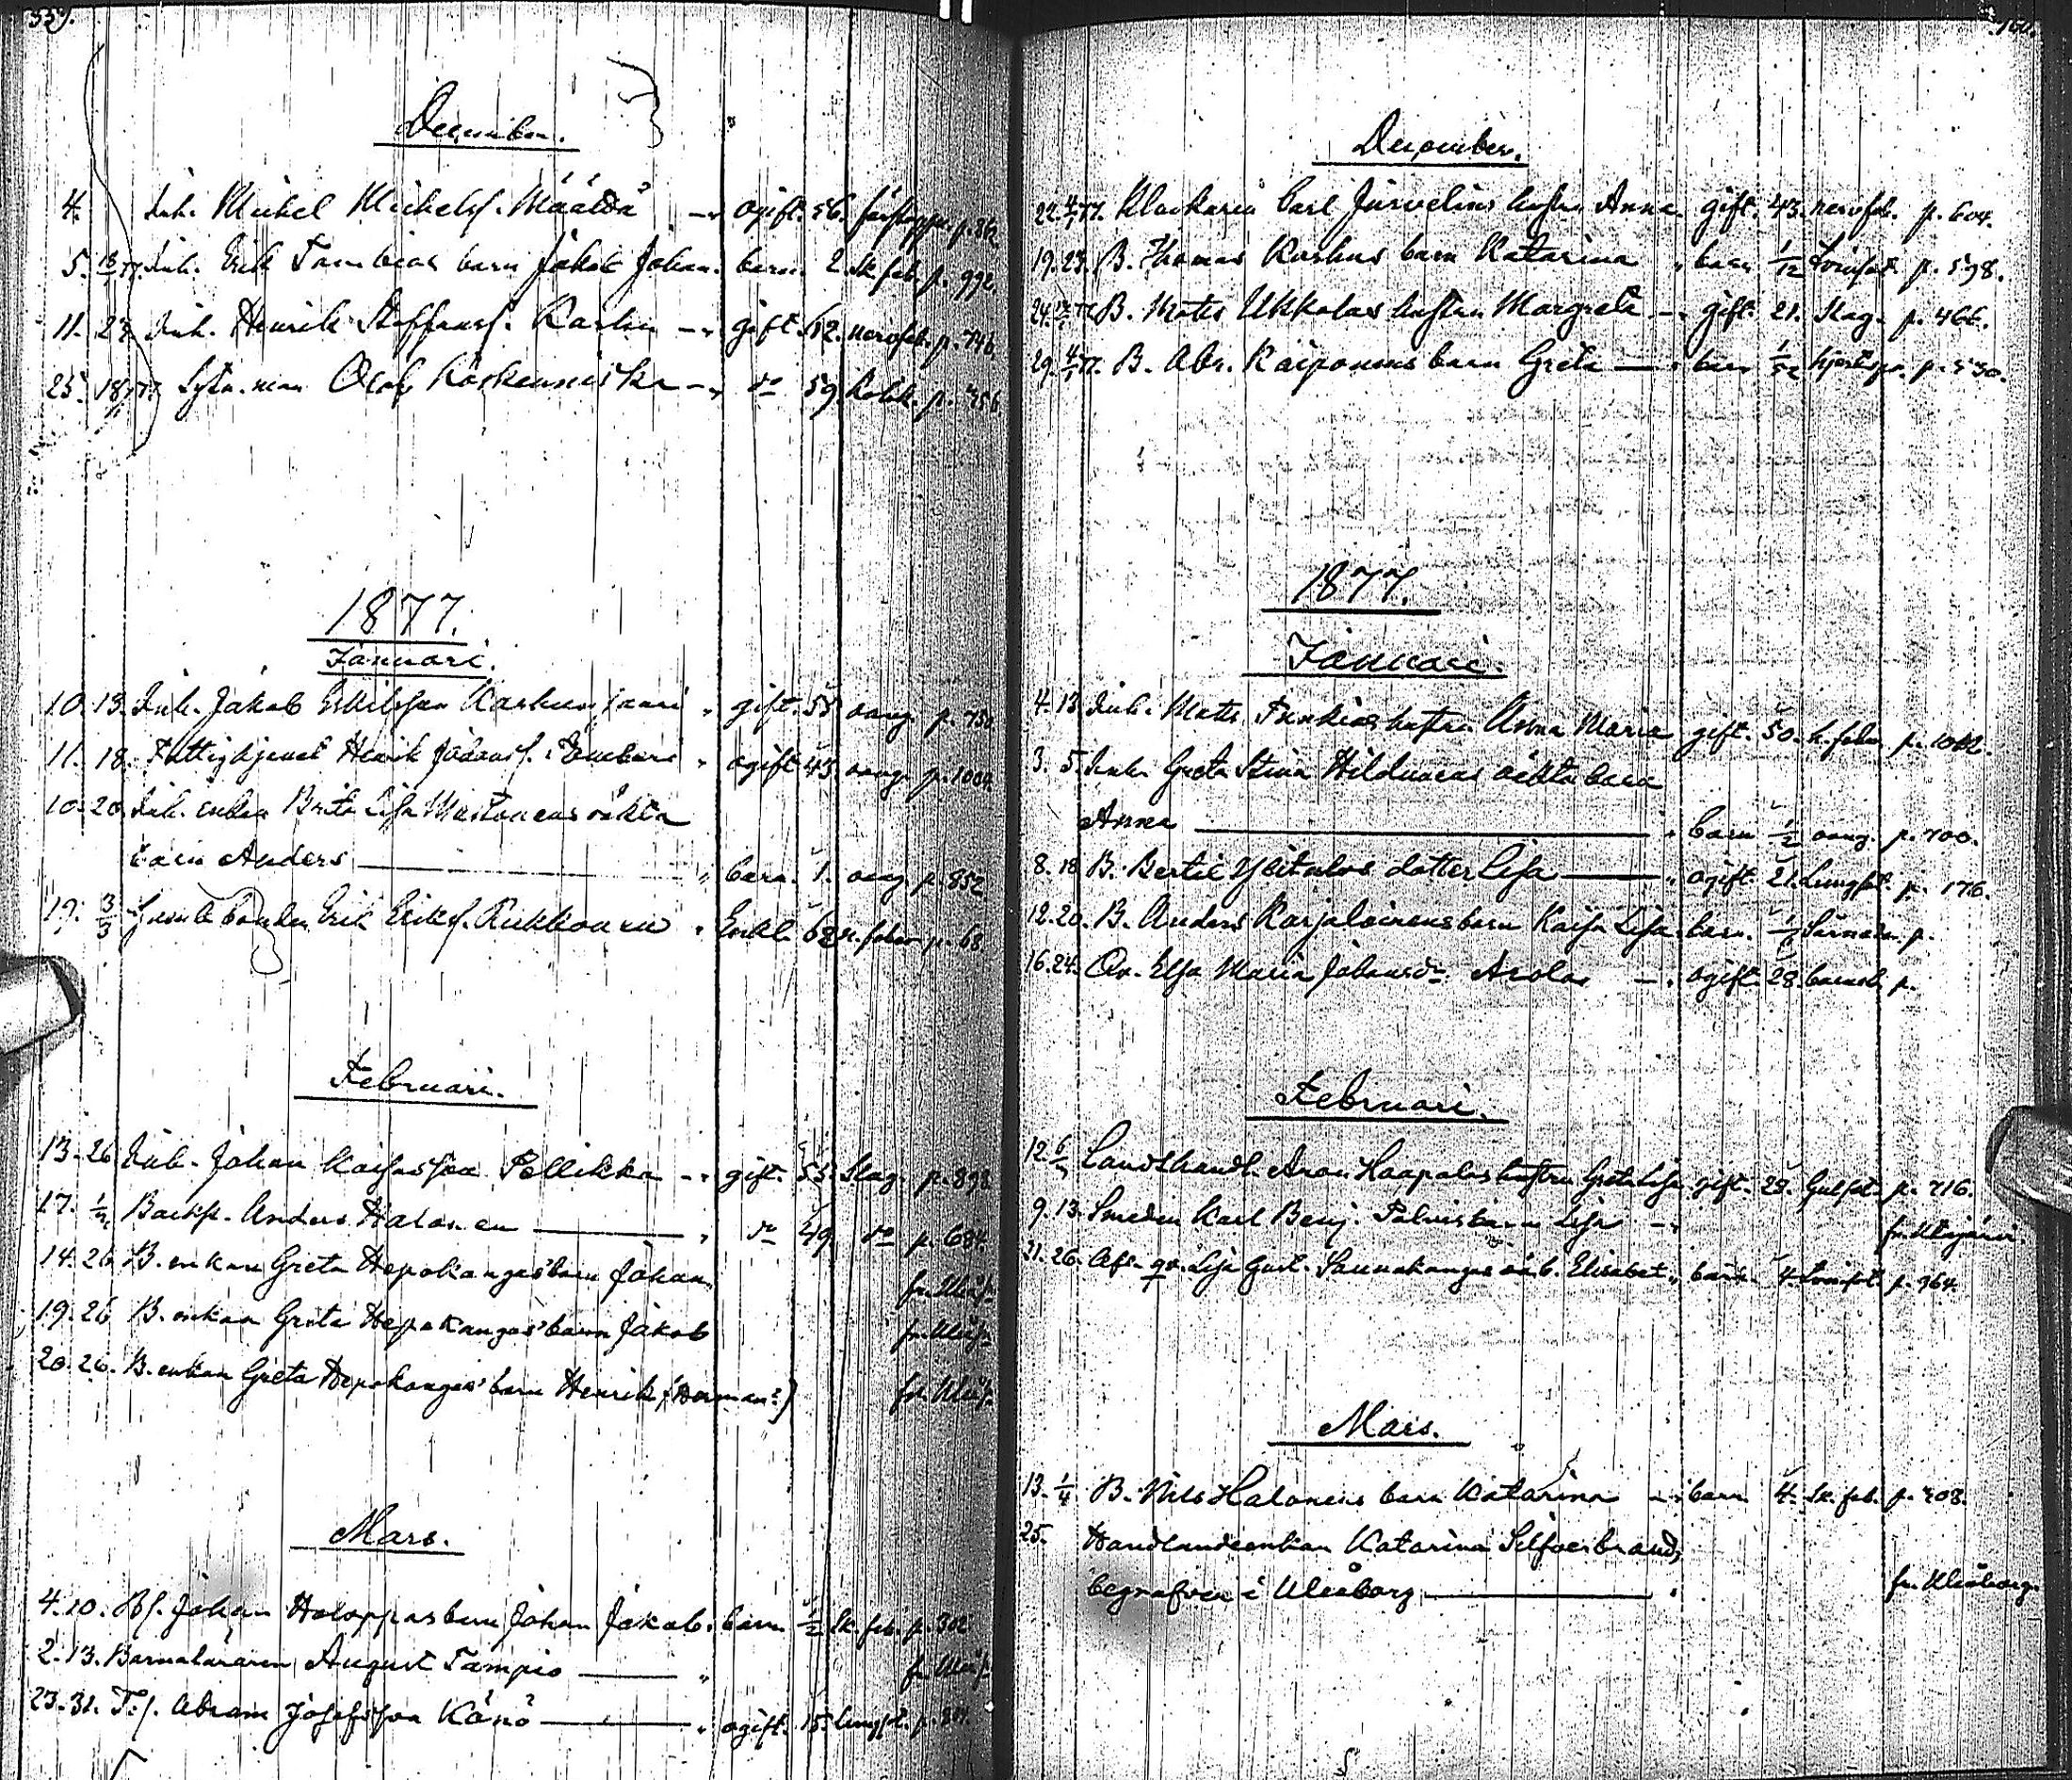 559.
December.
4. Inh. Mickel Mickelss. Määttä — ogift. 56. förstoppn. p. 862
5. 13/1 77. Inh. Erik Tambias barn Jakob Johan. barn. 2. Sk. feb. p. 992.
11. 27. Inh. Henrik Staffanss. Karhu — gift. 62. nervfeb. p. 746
25. 18/1 77. Sytn. man Olof Koskenniska — do 59. Kolik. p. 456
1877.
Januari.
10. 13. Inh. Jakob Eskilsson Karhunsaari gift. 55 oang. p. 750
11. 18. Fattighjonet Henrik Johanss. ogift 43. oang. p. 1004
10. 20. Inh. enkan Brita Lisa Mustonens oäkta
barn Anders — barn. 1. oang. p. 852
19. 3/3 Gamle bonden Erik Erikss. Kukkonen Enkl. 68 p. 68
Februari.
13. 26 Inh. Johan Kaisasson Pellikka — gift. 55. Slag. p. 898
17. Backst. Anders Halonen — do 49. do p. 684
14. 26 B. enkan Greta Hepokangas' barn Johan fr. Uleåb.
19. 26 B. enkan Greta Hepokangas' barn Jakob fr. Uleåb.
20. 26. B. enkan Greta Hepokangas' barn Henrik (Herman?) fr. Uleåb.
Mars.
4. 10. Bs. Johan Holappas barn Johan Jakob. barn 1/2 Sk. feb. p. 302
2. 13. Barnaläraren August Tampio — fr. Uleåb.
23. 31. T.s. Abram Josefsson Könö — ogift. 15. Lungs.
160.
December.
22. 4/1 77. Klockaren Carl Järvelins hustru Anna gift. 43. nervfeb. p. 604.
19. 23. B. Thomas Karhus barn Katarina barn 1/12 p. 598.
24. B. Matts Ukkolas hustru Margreta — gift. 21. Slag. p. 466.
29. 4/1 77. B. Abr. Kaiponens barn Greta — barn p. 530.
1877.
Januari.
4. 13. Inh. Matts Funkias hustru Anna Maria gift. 50. p. 1012.
3. 5. Inh. Greta Stina Hildunens oäkta barn
Anna — barn 1/2 oang. p. 700.
8. 18. B. Bertil Ylitalos dotter Lisa — ogift. 21. Lungsot. p. 176.
12. 20. B. Anders Karjalainens barn Kaisa Lisa. barn. p.
16. 24. Qv. Elsa Maria Johansdr Arola — ogift. 28. barnsb. p.
Februari.
12. 6/3 Landthandl. Aron Haapalas hustru Greta Lisa gift. 28. Gulsot. p. 716.
9. 13. Smeden Karl Benj. Palmis barn Lisa — fr. Utajärvi.
21. 26. Afs. qv. Lisa Gust. Saunakangas oä b. Elisabet barn. 4. p. 964.
Mars.
13. 1/4 B. Nils Halonens barn Katarina — barn 4. Sk. feb. p. 408.
25. Handlandeenkan Katarina Silfverbrand,
begrafven i Uleåborg — fr. Uleåborg.